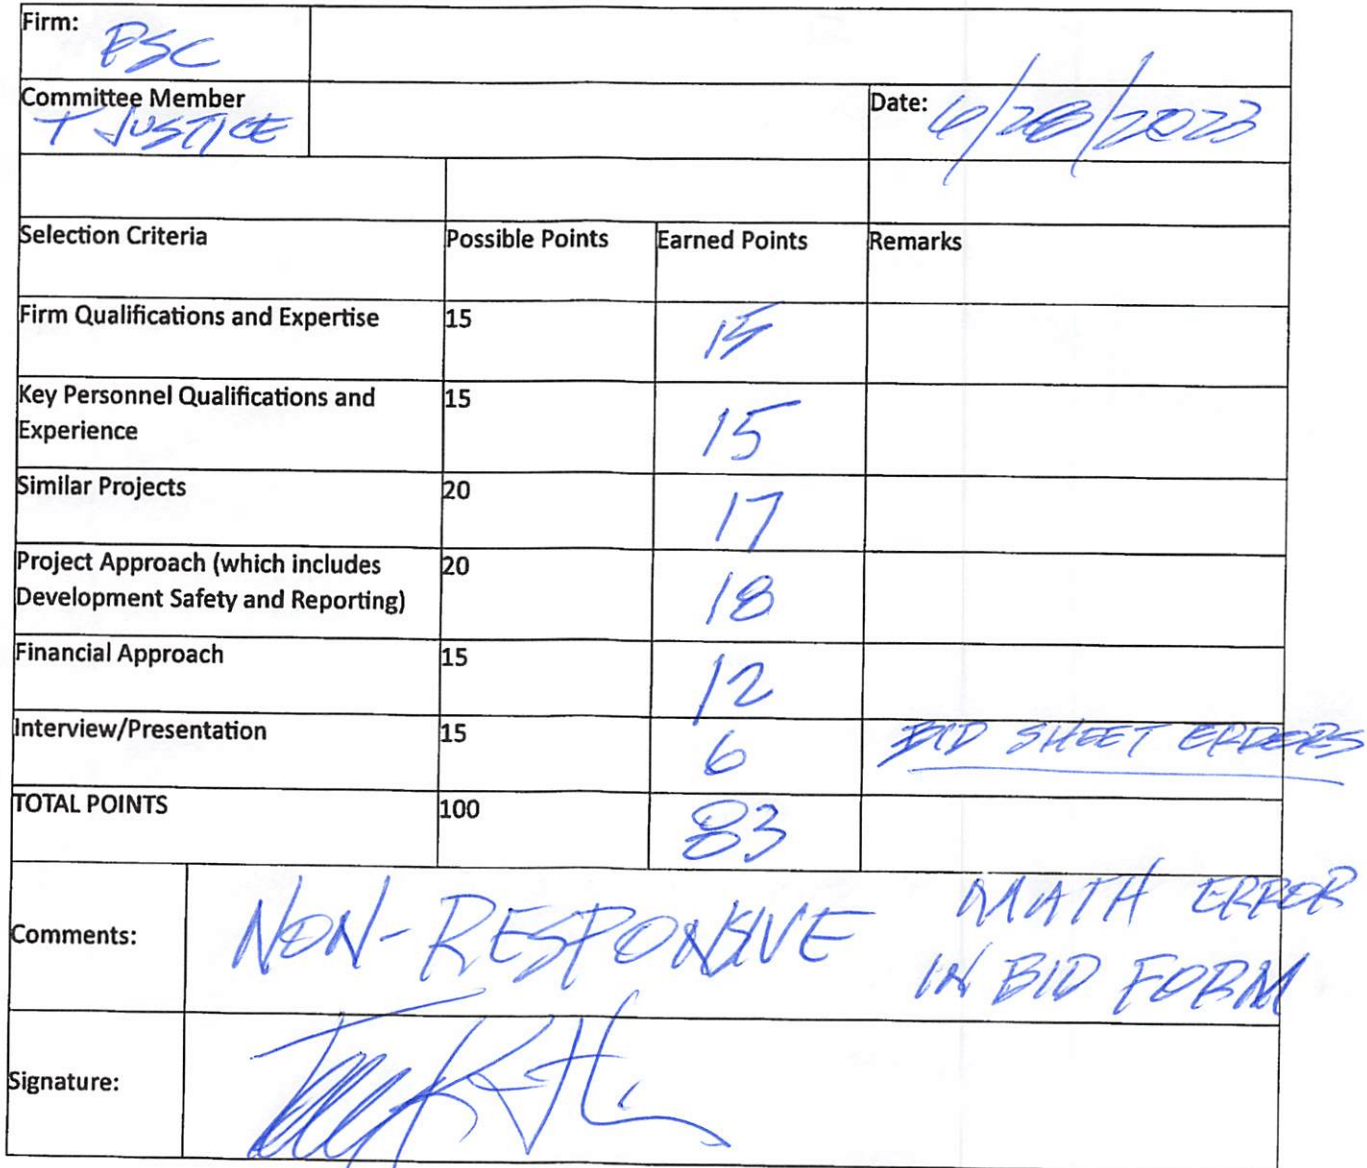 Firm: PSC
Committee Member
T JUSTICE
Date: 6/28/2023
Selection Criteria Possible Points Earned Points Remarks
Firm Qualifications and Expertise 15 15
Key Personnel Qualifications and
Experience 15 15
Similar Projects 20 17
Project Approach (which includes
Development Safety and Reporting) 20 18
Financial Approach 15 12
Interview/Presentation 15 6 BID SHEET ERRORS
TOTAL POINTS 100 83
Comments: NON-RESPONSIVE MATH ERROR
IN BID FORM
Signature: